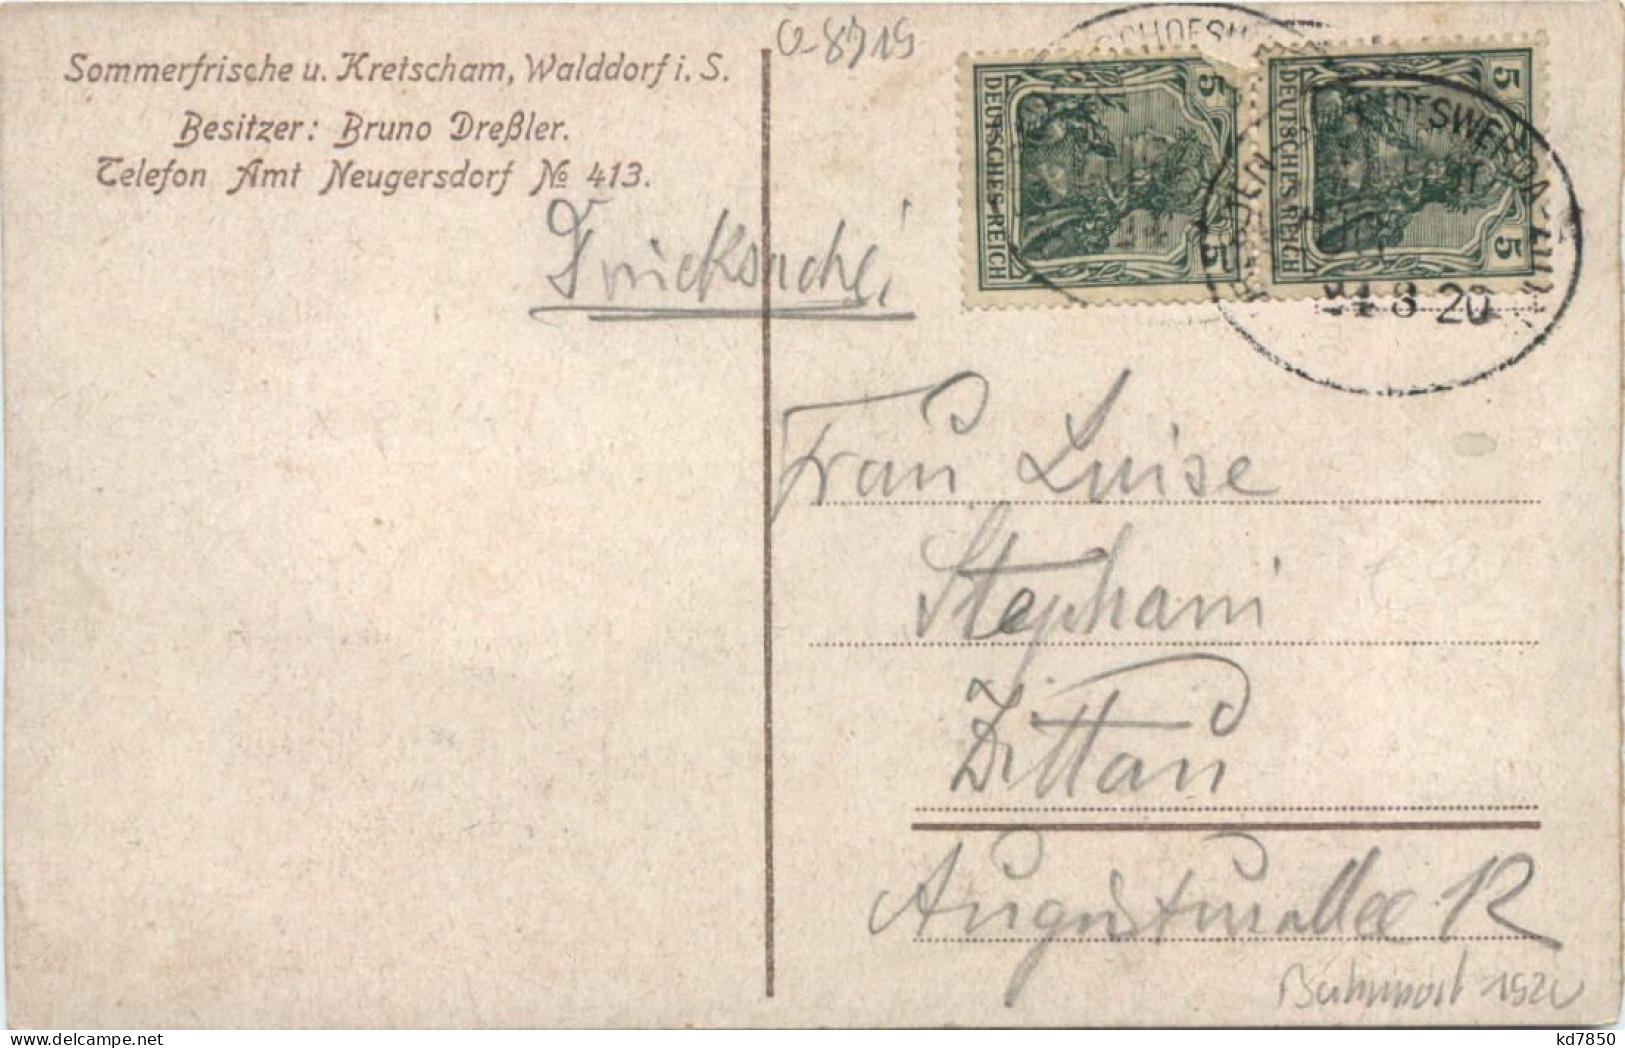 Sommerfrische u. Kretscham, Walddorf i. S.
Besitzer: Bruno Dreßler.
Telefon Amt Neugersdorf № 413.
O-8719
Drucksache!
5 DEUTSCHES REICH 5
5 DEUTSCHES REICH 5
BISCHOFSWERDA-ZITTAU
8 20
Frau Luise
Stephani
Zittau
Augustusallee 12
Bahnpost 1920
kd7850